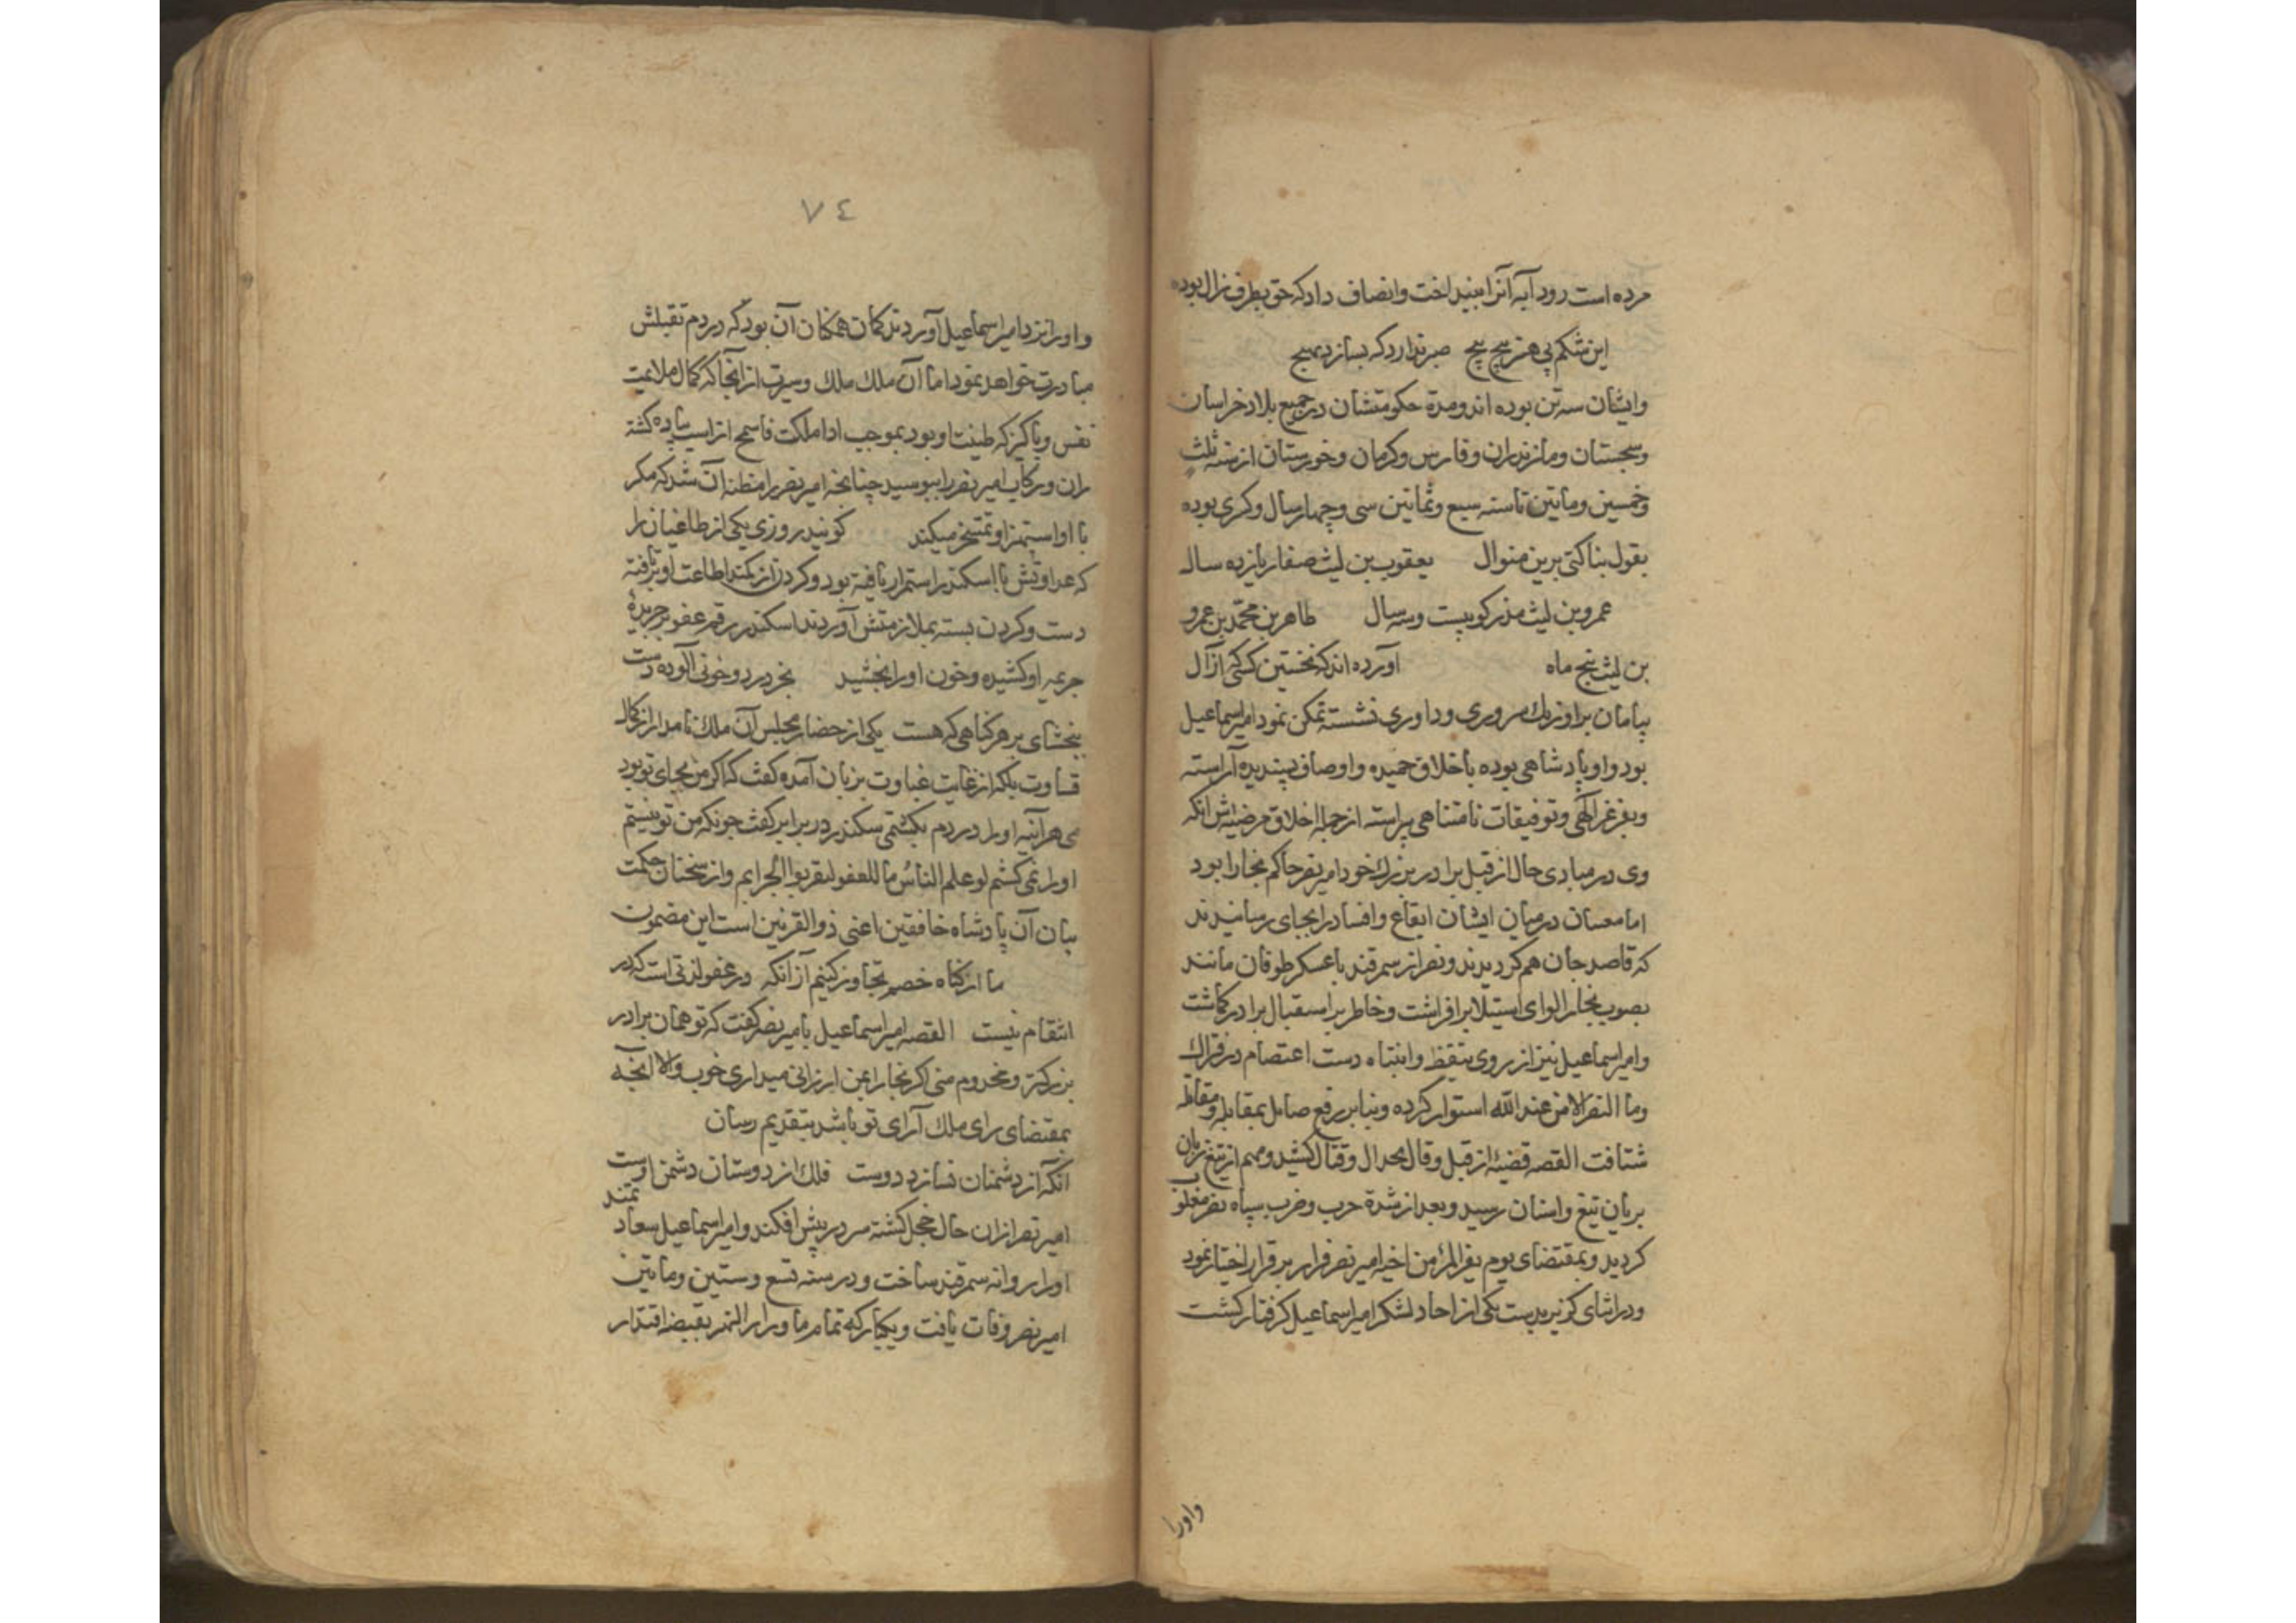 مرده است رود آیه آنرا ببینداخت وانصاف داد که حق بطرف زال بوده
این شکم بی هنر پیچ پیچ صبر ندارد که بسازد بهیچ
وایشان سه تن بوده اند ومدة حکومتشان در جمیع بلاد خراسان
وسجستان ومازندران وفارس وکرمان وخورستان از سنه ثلث
وخمسین وماتین تا سنه سبع وثمانین سی وچهار سال وکسری بوده
بقول بناکتی برین منوال یعقوب بن لیث صفار یازده سال
عمرو بن لیث مذکور بیست وسه سال طاهر بن محمد بن عمرو
بن لیث پنج ماه آورده اند که نخستین کسی که از آل
سامان بر اورنك سروری وداوری نشسته تمکن نمود امیر اسماعیل
بود واو پادشاهی بوده باخلاق حمیده واوصاف پسندیده آراسته
وبفر عز الهی وتوفیقات نامتناهی پیراسته از جمله اخلاق مرضیه اش انکه
وی در مبادی حال از قبل برادر بزرك خود امیر نصر حاکم بخارا بود
اما مفسدان در میان ایشان ایقاع وافساد را بجای رسانیدند
که قاصد جان هم کردیدند ونصر از سمرقند با عسکر طوفان مانند
بصوب بخارا لوای استیلا برافراشت وخاطر بر استقبال برادر کماشت
وامیر اسماعیل نیز از روی تیقظ وانتباه دست اعتصام در فتراك
وما النصر الا من عند الله استوار کرده وبنابر رفع صایل بمقابله ومقاتله
شتافت القصه قضیه از قیل وقال بجدال وقتال کشید ومهم از تیغ زبان
بزبان تیغ وسنان رسید وبعد از شدة حرب وضرب سپاه نصر مغلوب
کردید وبمقتضای یوم یفر المرء من اخیه امیر نصر فرار بر قرار اختیار نمود
ودر اثنای کریز بدست یکی از احاد لشکر امیر اسماعیل کرفتار کشت
واورا
٧٤
واورا نزد امیر اسماعیل آوردند کمان همکنان آن بود که در دم بقتلش
مبادرت خواهد نمود اما آن ملك ملك سیرت از آنجا که کمال ملایمت
نفس وپاکیزکی طینت او بود بموجب اذا ملکت فاسمح از اسب پیاده کشته
ران ورکاب امیر نصر را ببوسید چنانچه امیر نصر را مظنه آن شد که مکر
با او استهزا وتمسخر میکند کویند روزی یکی از طاغیان را
که عداوتش با اسکندر استمرار یافته بود وکردن از کمند اطاعت او برتافته
دست وکردن بسته بملازمتش آوردند اسکندر رقم عفو بر جریدهٔ
جریمه او کشیده وخون اورا بخشید بخر درد وخونی آلوده دست
ببخشای بر هر کناهی که هست یکی از حضار مجلس آن ملك نامدار از کمال
قساوت بلکه از غایت غباوت بزبان آمده کفت که اکر من بجای تو بود
می هرآینه اورا در دم بکشتمی سکندر در برابر کفت چونکه من تو نیستم
اورا نمی کشم لو علم الناس ما للعفو لتقربوا بالجرایم واز سخنان حکمت
بیان آن پادشاه خافقین اعنی ذو القرنین است این مضمون
ما از کناه خصم تجاوز کنیم از آنکه در عفو لذتی است که در
انتقام نیست القصه امیر اسماعیل با امیر نصر کفت که تو همان برادر
بزرکتر ومخدوم منی اکر بخارا بمن ارزانی میداری خوب والا آنچه
بمقتضای رای ملك آرای تو باشد بتقدیم رسان
انکه از دشمنان نسازد دوست فلك از دوستان دشمن اوست
امیر نصر ازان حال خجل کشته سر در پیش افکند وامیر اسماعیل سعادتمند
اورا روانه سمرقند ساخت ودر سنه تسع وسبعین وماتین
امیر نصر وفات یافت ویکبارکه تمام ما وراء النهر بقبضه اقتدار